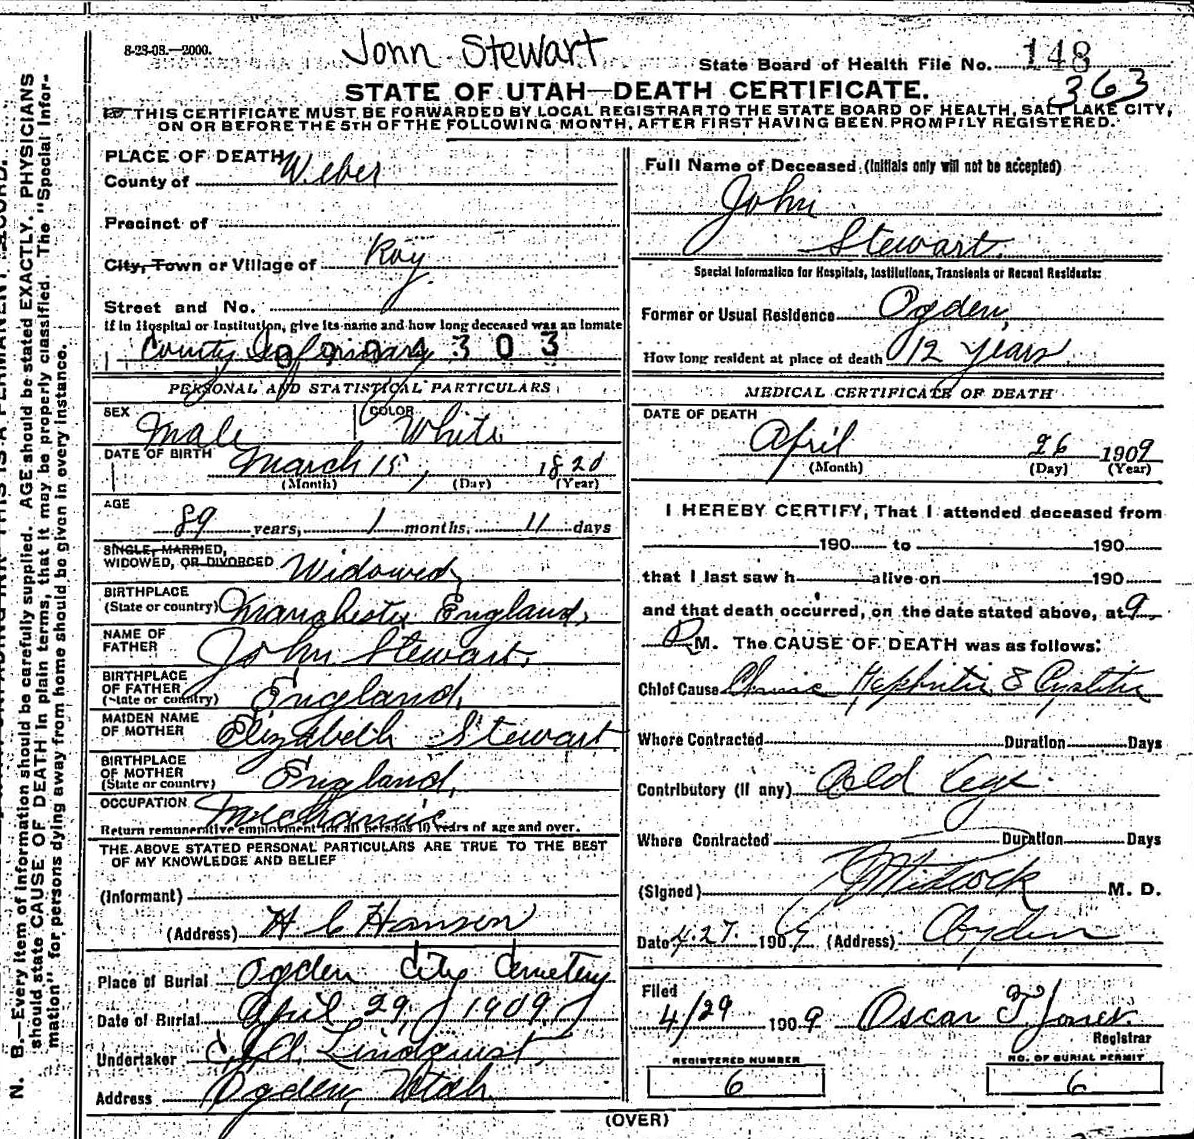 8-23-08.—2000.
John Stewart
State Board of Health File No. 148
363
STATE OF UTAH—DEATH CERTIFICATE.
THIS CERTIFICATE MUST BE FORWARDED BY LOCAL REGISTRAR TO THE STATE BOARD OF HEALTH, SALT LAKE CITY,
ON OR BEFORE THE 5TH OF THE FOLLOWING MONTH, AFTER FIRST HAVING BEEN PROMPILY REGISTERED.
PLACE OF DEATH
County of Weber
Precinct of
City, Town or Village of Roy
Street and No.
If in Hospital or Institution, give its name and how long deceased was an inmate
County Infirmary
0904303
PERSONAL AND STATISTICAL PARTICULARS
SEX Male
COLOR White
DATE OF BIRTH March 15, 1820
(Month) (Day) (Year)
AGE
89 years, 1 months, 11 days
SINGLE, MARRIED,
WIDOWED, OR DIVORCED Widowed
BIRTHPLACE
(State or country) Manchester England,
NAME OF
FATHER John Stewart.
BIRTHPLACE
OF FATHER
(State or country) England,
MAIDEN NAME
OF MOTHER Elizabeth Stewart
BIRTHPLACE
OF MOTHER
(State or country) England,
OCCUPATION Mechanic
Return remunerative employment for all persons 10 years of age and over.
THE ABOVE STATED PERSONAL PARTICULARS ARE TRUE TO THE BEST
OF MY KNOWLEDGE AND BELIEF
(Informant)
(Address) H C Hansen
Place of Burial Ogden City Cemetery
Date of Burial April 29, 1909
Undertaker Lindquist,
Address Ogden, Utah.
Full Name of Deceased (Initials only will not be accepted)
John
Stewart.
Special Information for Hospitals, Institutions, Transients or Recent Residents:
Former or Usual Residence Ogden,
How long resident at place of death 12 years
MEDICAL CERTIFICATE OF DEATH
DATE OF DEATH
April 26 1909
(Month) (Day) (Year)
I HEREBY CERTIFY, That I attended deceased from
190 to 190
that I last saw h alive on 190
and that death occurred, on the date stated above, at 9
P M. The CAUSE OF DEATH was as follows:
Chief Cause Chronic Nephritis & Cystitis
Where Contracted Duration Days
Contributory (if any) Old Age.
Where Contracted Duration Days
(Signed) M. D.
Date 4.27. 1909 (Address) Ogden
Filed
4/29 1909 Oscar T Jones.
Registrar
REGISTERED NUMBER
6
NO. OF BURIAL PERMIT
6
(OVER)
N. B.—Every item of information should be carefully supplied. AGE should be stated EXACTLY. PHYSICIANS
should state CAUSE OF DEATH in plain terms, that it may be properly classified. The "Special Infor-
mation" for persons dying away from home should be given in every instance.